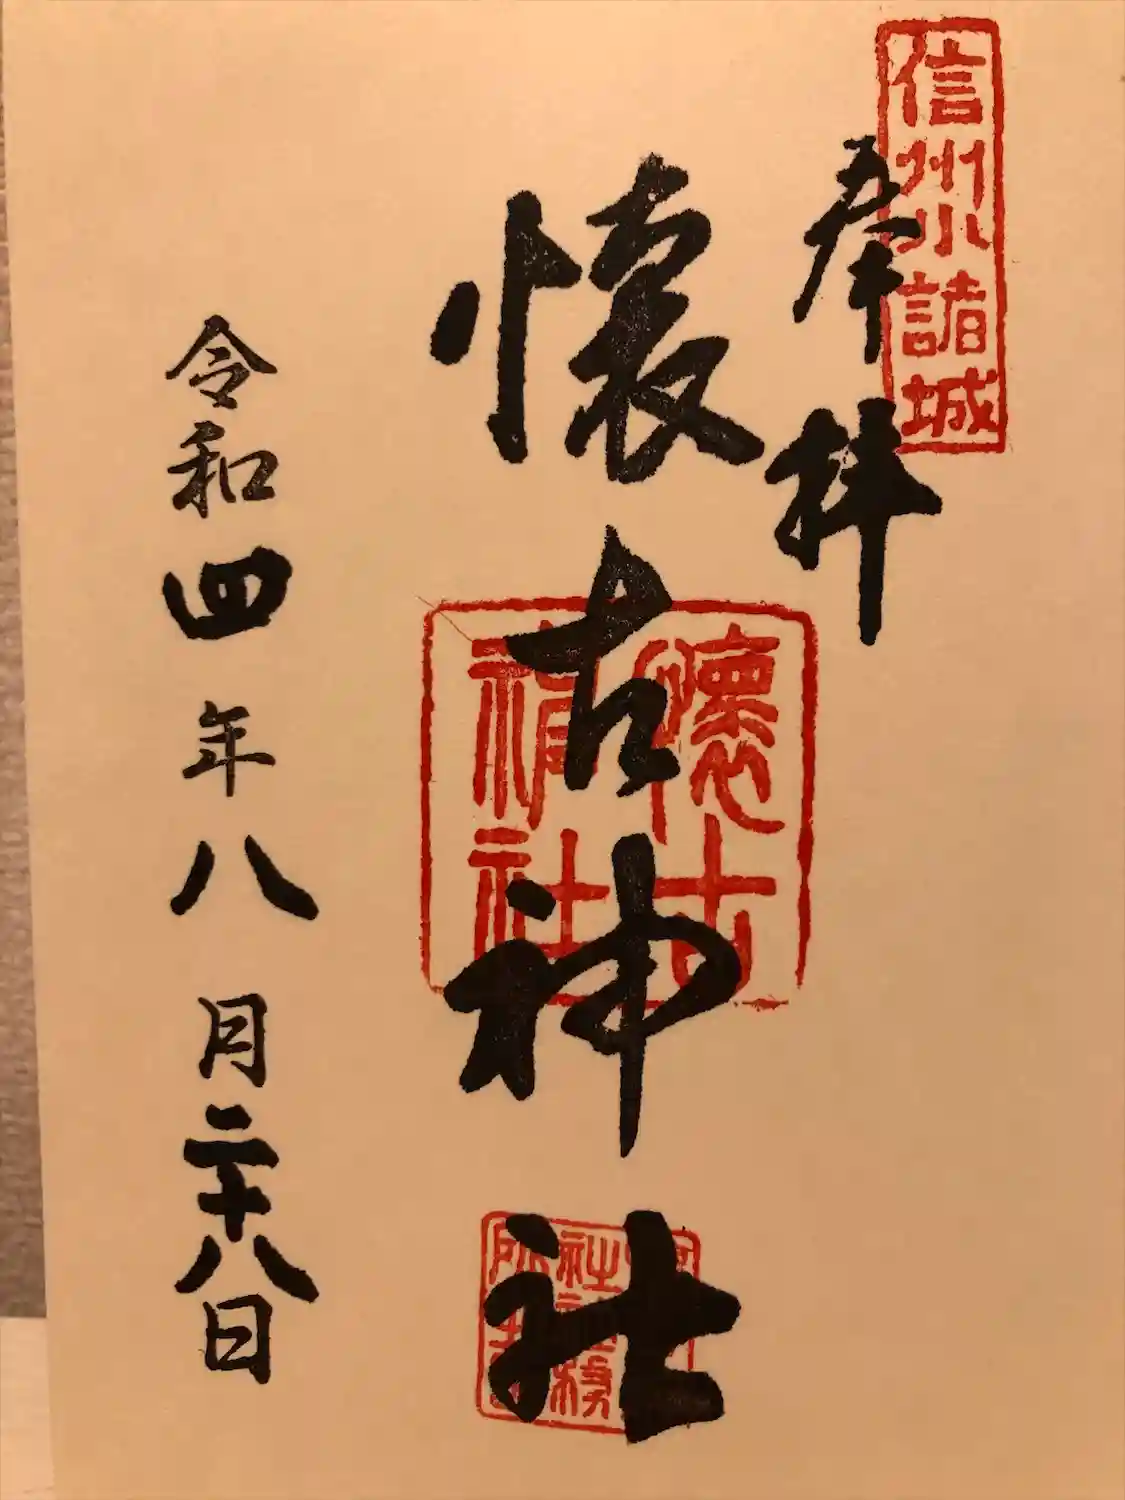 信州小諸城
奉拝
懐古神社
懐古
神社
令和四年八月二十八日